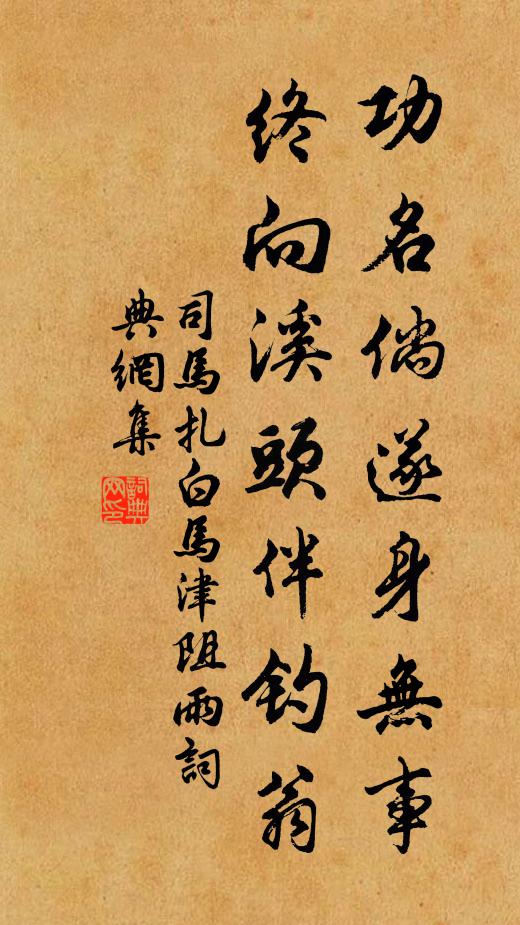 功名倘遂身無事
終向溪頭伴釣翁
司馬扎白馬津阻雨詞
典網集
詞典
网印